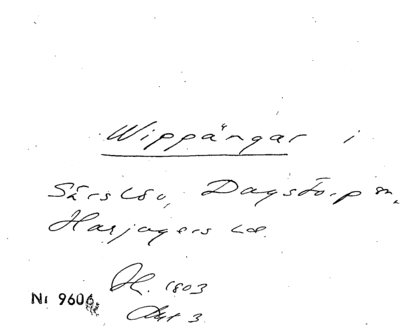 Wippängar i
Särslöv, Dagstorp sn,
Harjagers hd.
H. 1803
Akt 3.
Nr 9606